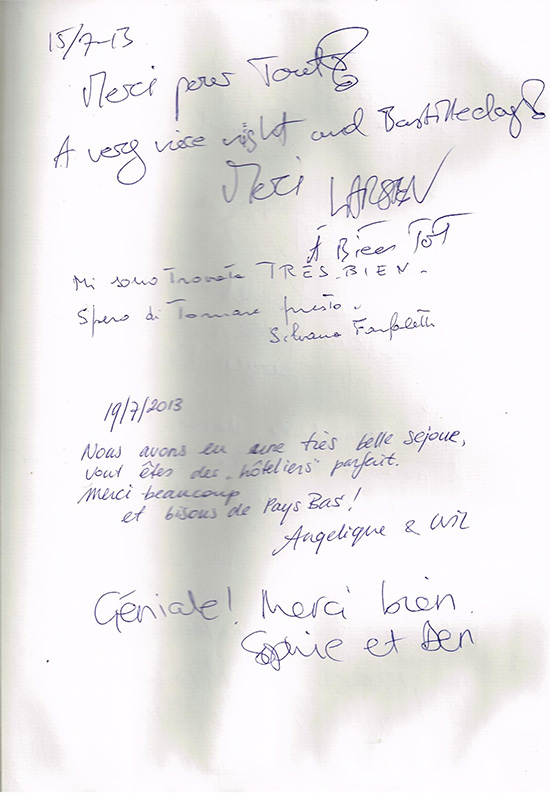 15/7-13
Merci pour Tout!
A very nice night and Bastilleday!
Merci LARSEN
À Bien Tôt
Mi sono trovata TRÈS-BIEN.
Spero di Tornare presto.
Silvana
19/7/2013
Nous avons eu une très belle sejoue,
vout êtes des „hôteliers" parfait.
Merci beaucoup
et bisous de Pays Bas!
Angelique & Wil
Géniale! Merci bien.
Sophie et Den